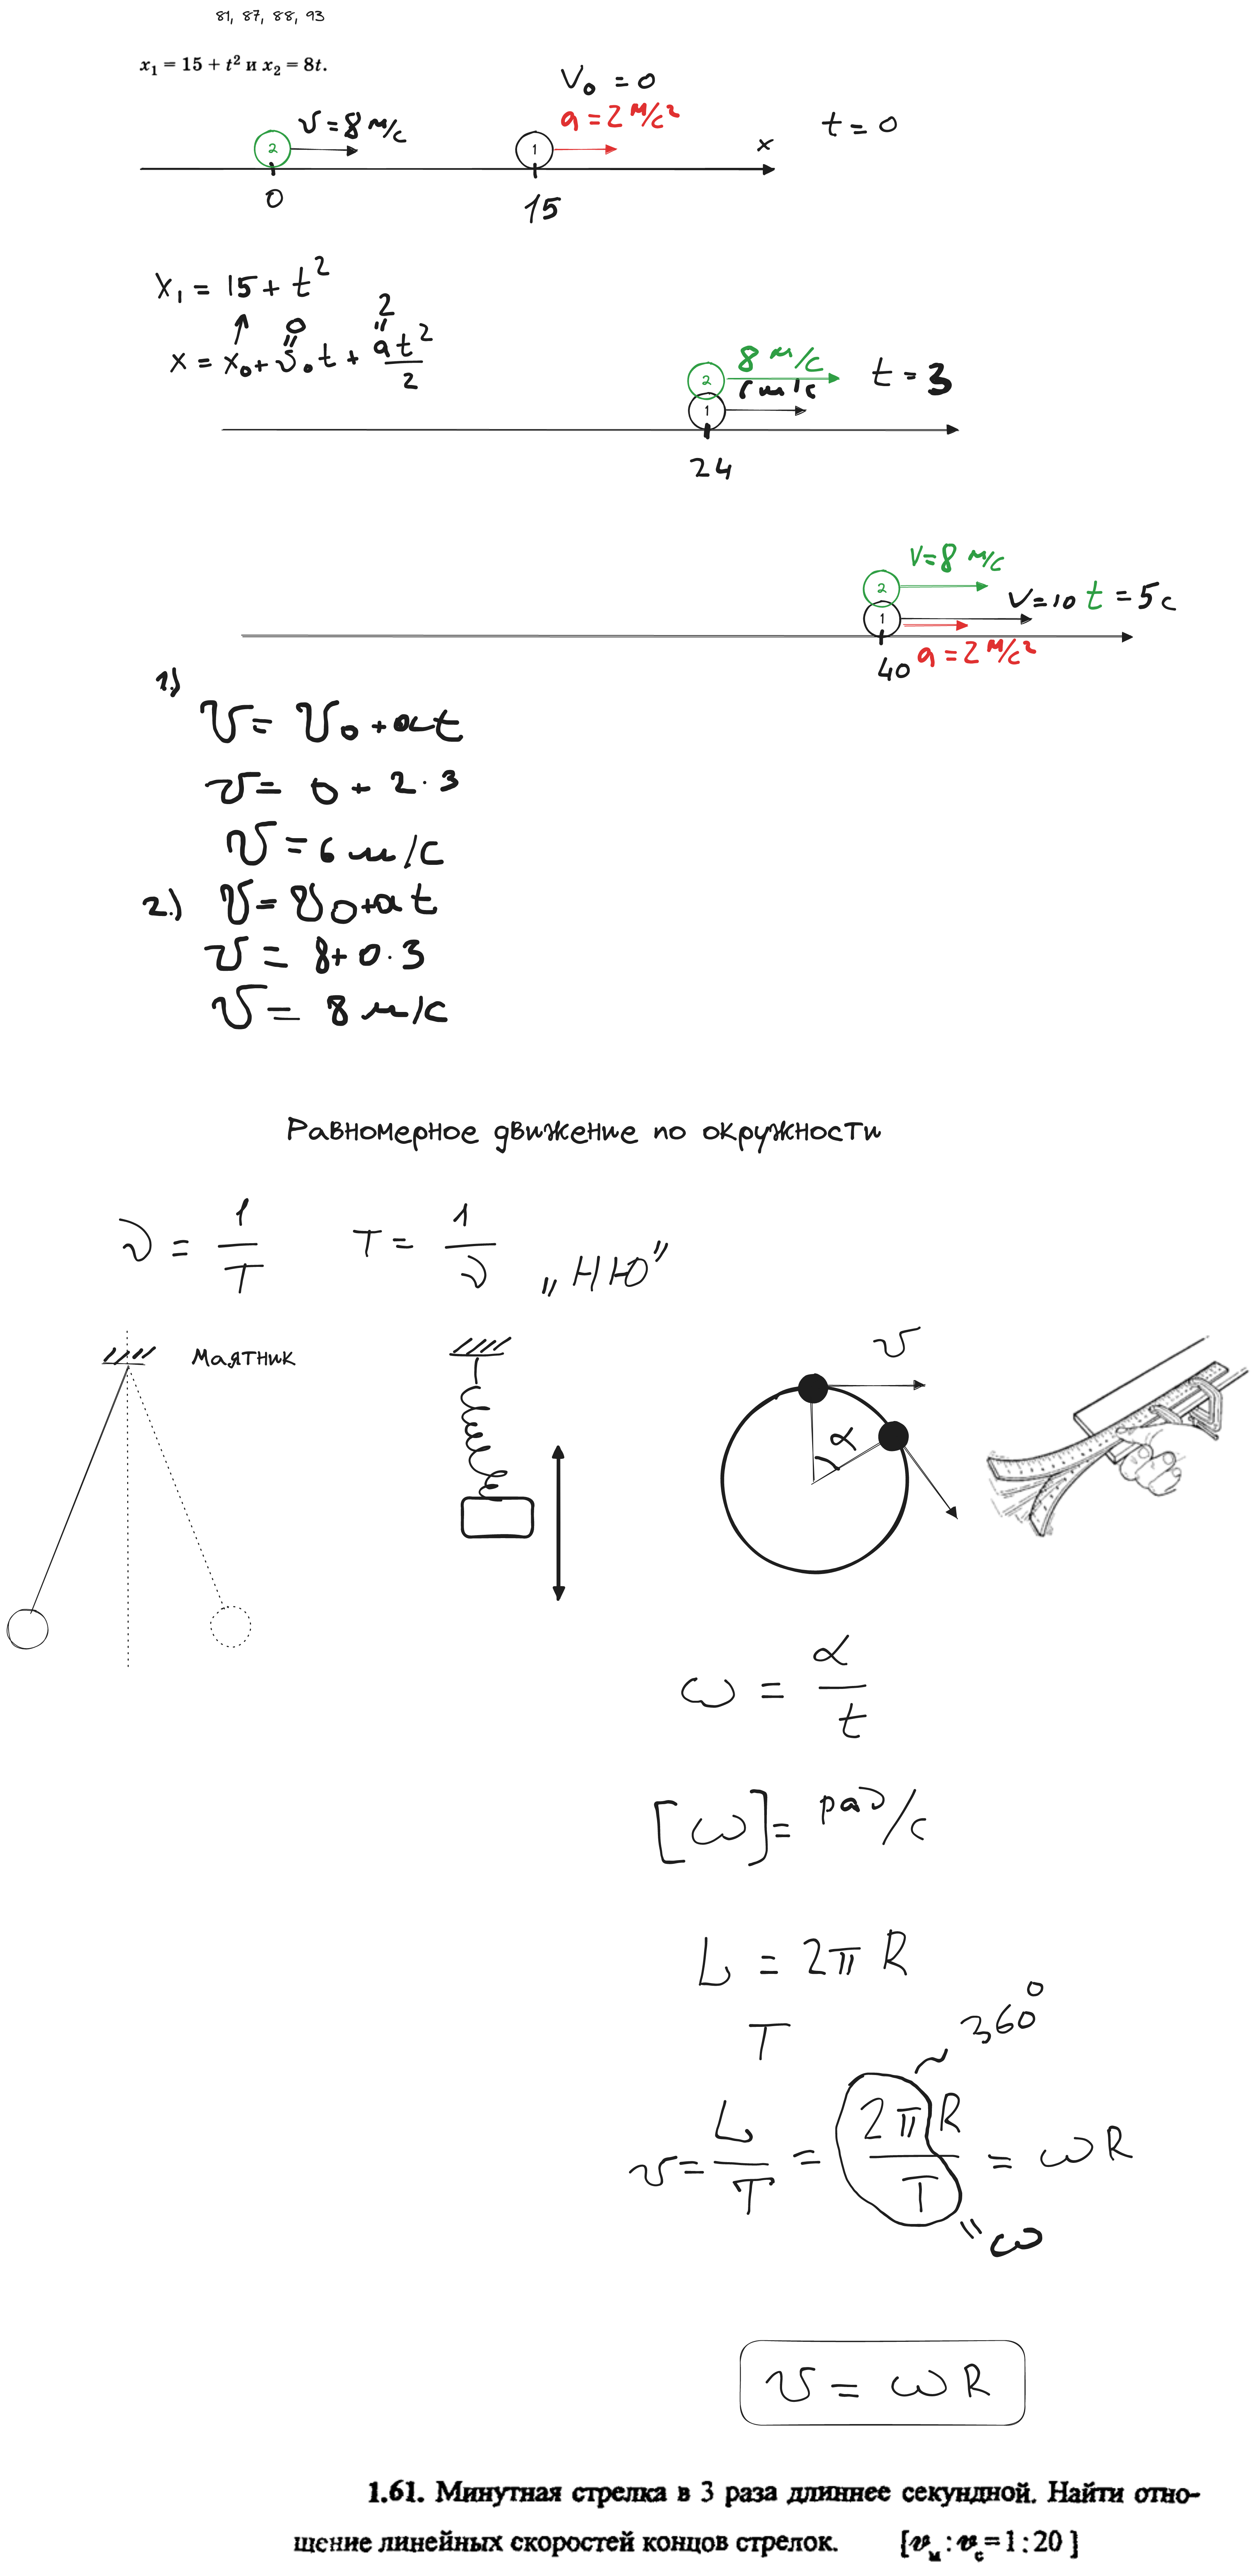 81, 87, 88, 93
x₁ = 15 + t² и x₂ = 8t.
V₀ = 0
a = 2 м/с²
v = 8 м/с
t = 0
2
1
x
0
15
x₁ = 15 + t²
0
2
x = x₀ + v₀t + at²/2
8 м/с
t = 3
2
6 м/с
1
24
V = 8 м/с
2
V = 10
t = 5 с
1
a = 2 м/с²
40
1.)
v = v₀ + at
v = 0 + 2 · 3
v = 6 м/с
2.) v = v₀ + at
v = 8 + 0 · 3
v = 8 м/с
Равномерное движение по окружности
ν = 1/T
T = 1/ν
„НЮ”
Маятник
v
α
ω = α/t
[ω] = рад/с
L = 2π R
T
~ 360°
v = L/T = 2πR/T = ωR
= ω
v = ωR
1.61. Минутная стрелка в 3 раза длиннее секундной. Найти отно-
шение линейных скоростей концов стрелок. [vм : vс = 1 : 20 ]